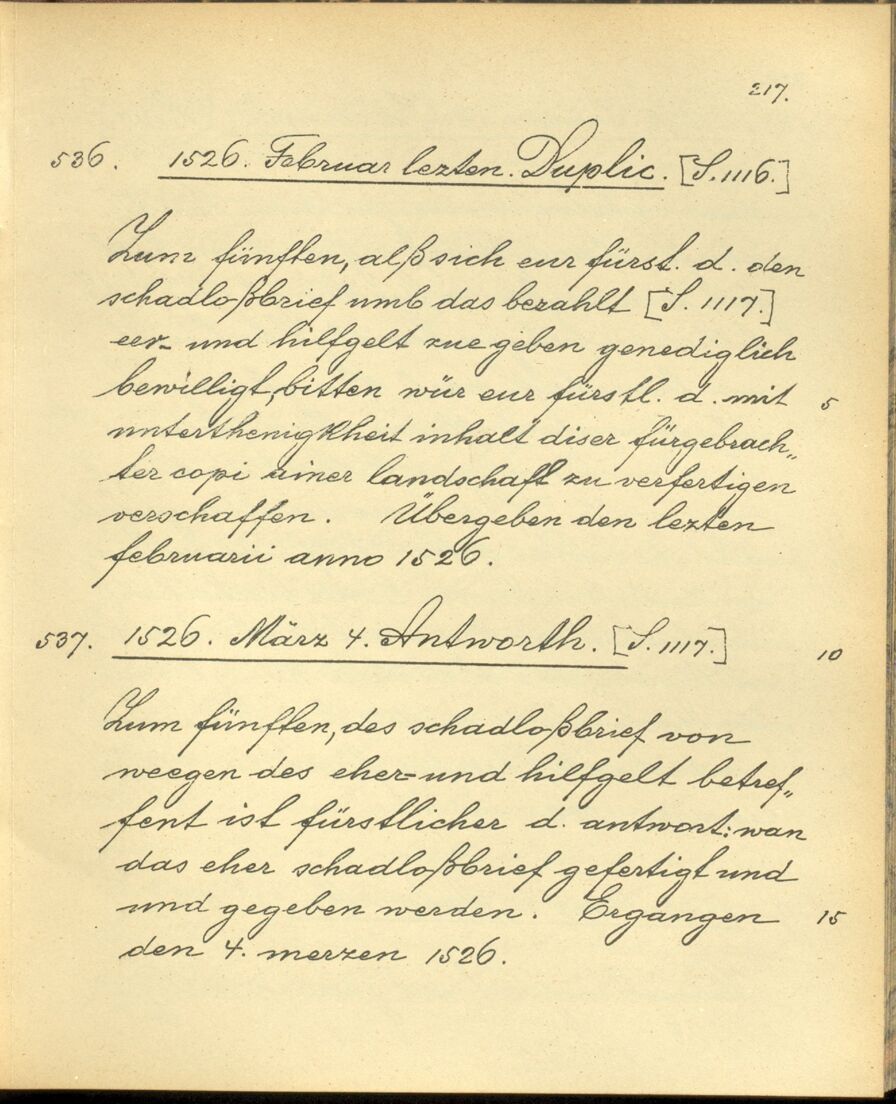 217.
536. 1526. Februar lezten. Duplic. [S. 1116.]
Zum fünften, alß sich eur fürst. d. den
schadloßbrief umb das bezahlt [S. 1117.]
eer- und hilfgelt zue geben genediglich
bewilligt, bitten wür eur fürstl. d. mit 5
unterthenigkheit inhalt diser fürgebrach„
ter copi ainer landschaft zu verfertigen
verschaffen. Übergeben den lezten
februarii anno 1526.
537. 1526. März 4. Antworth. [S. 1117.] 10
Zum fünften, des schadloßbrief von
weegen des eher- und hilfgelt betref„
fent ist fürstlicher d. antwort: wan
das eher schadloßbrief gefertigt und
und gegeben werden. Ergangen 15
den 4. merzen 1526.